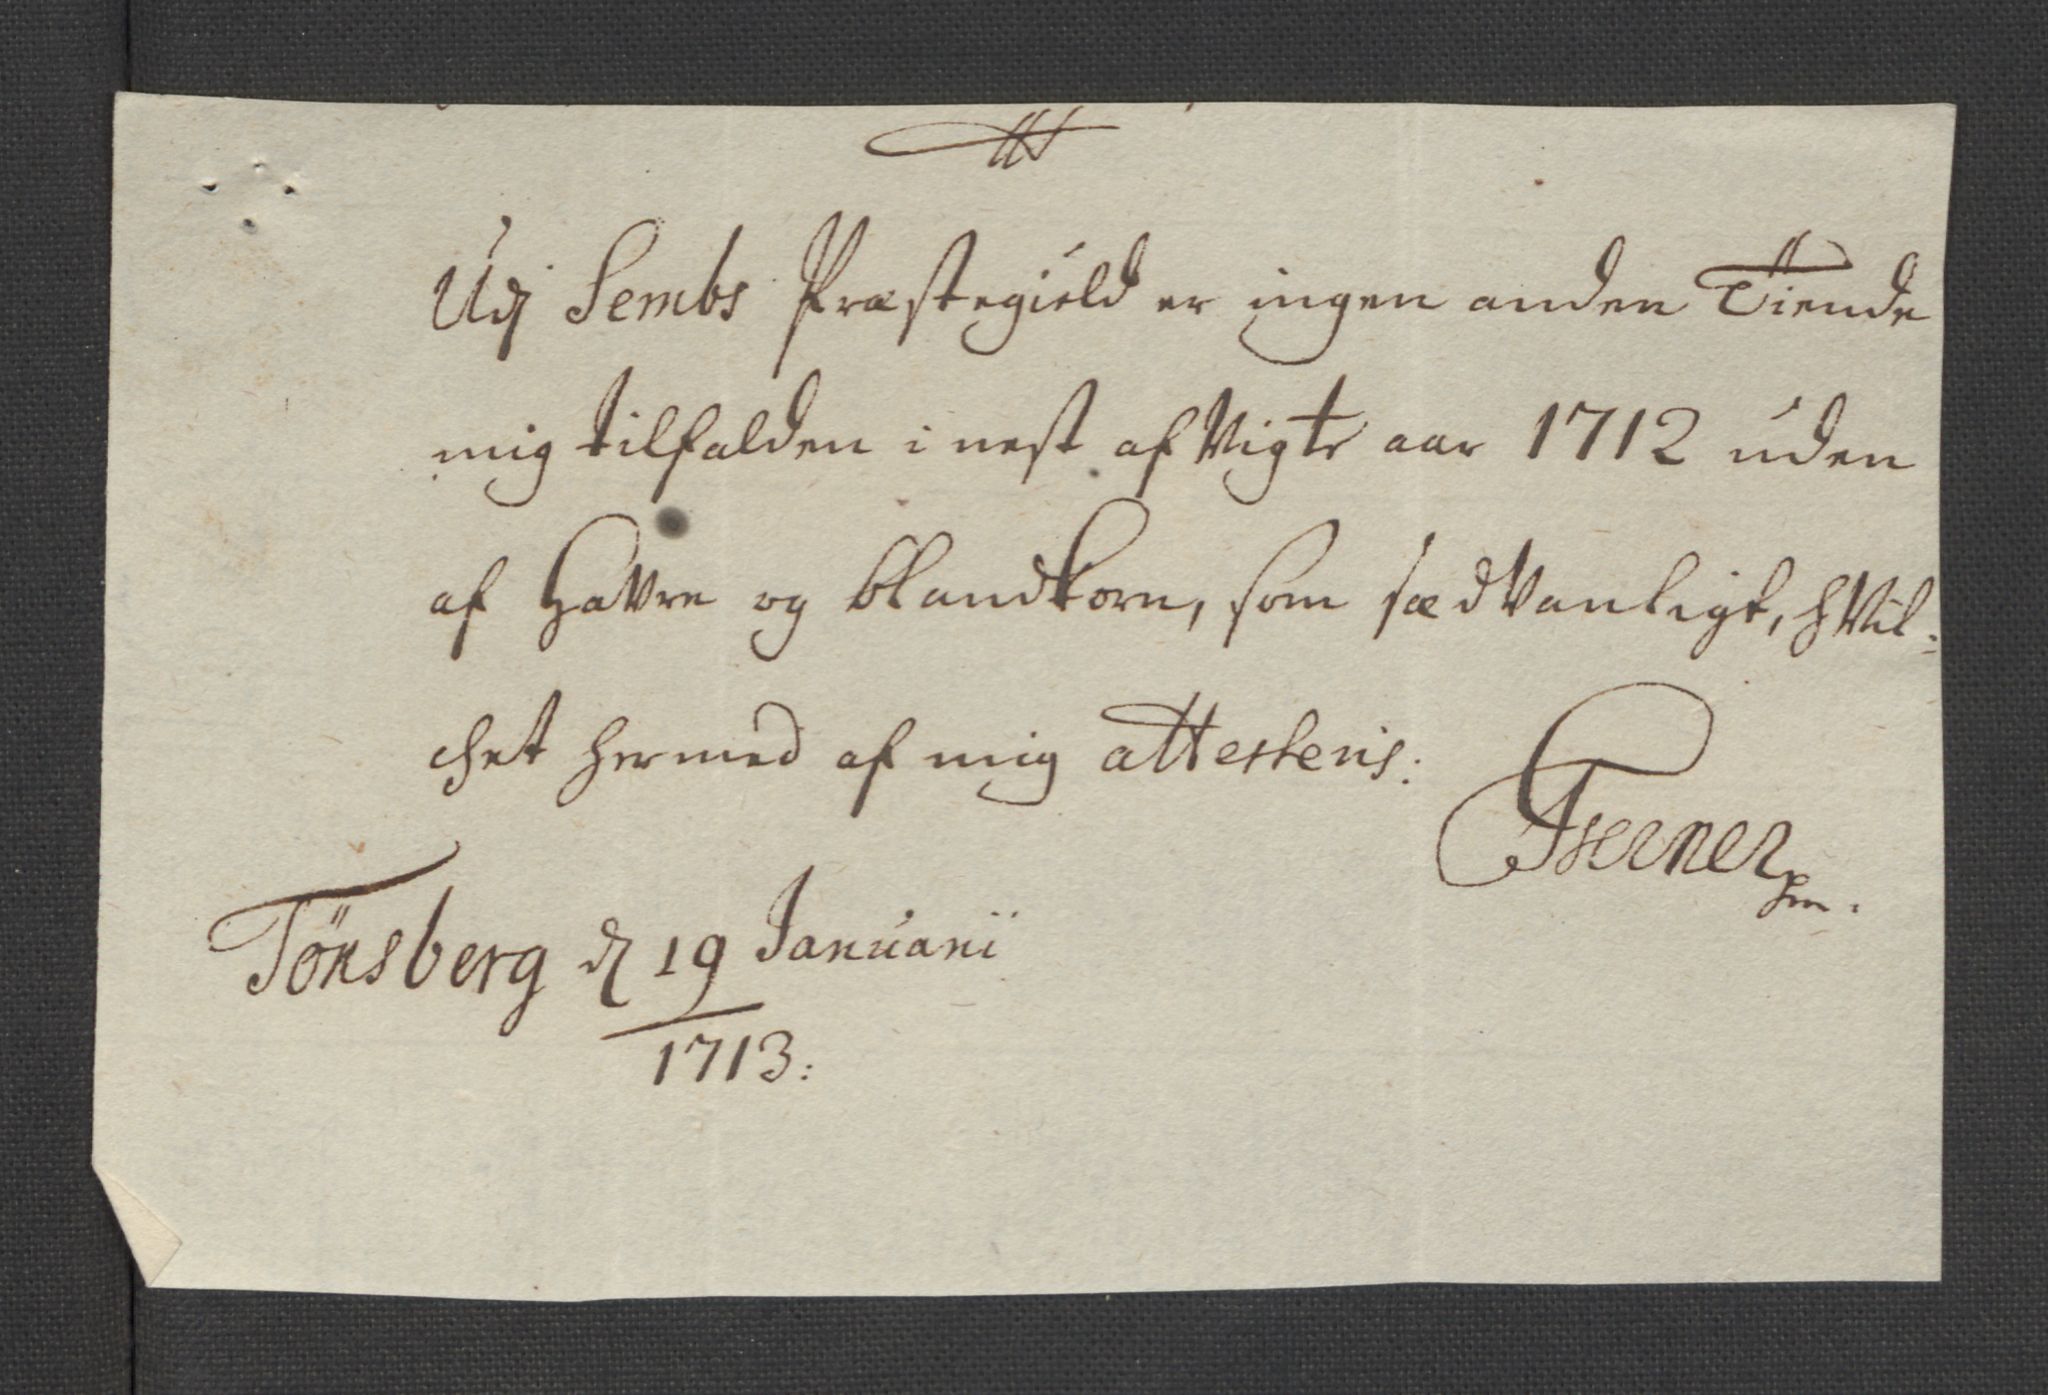 Udj Sembs Præstegield er ingen anden Tiende
mig tilfalden i nest afvigte aar 1712 uden
af Havre og blandkorn, som sædvanligt, hvil-
chet hermed af mig attesteris:
Tønsberg d 19 Januarii
1713: